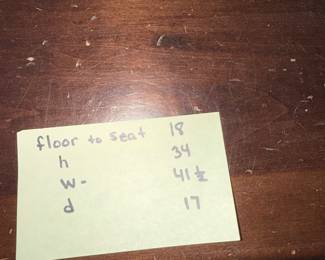 floor to seat 18
h 34
w- 41 1/2
d 17